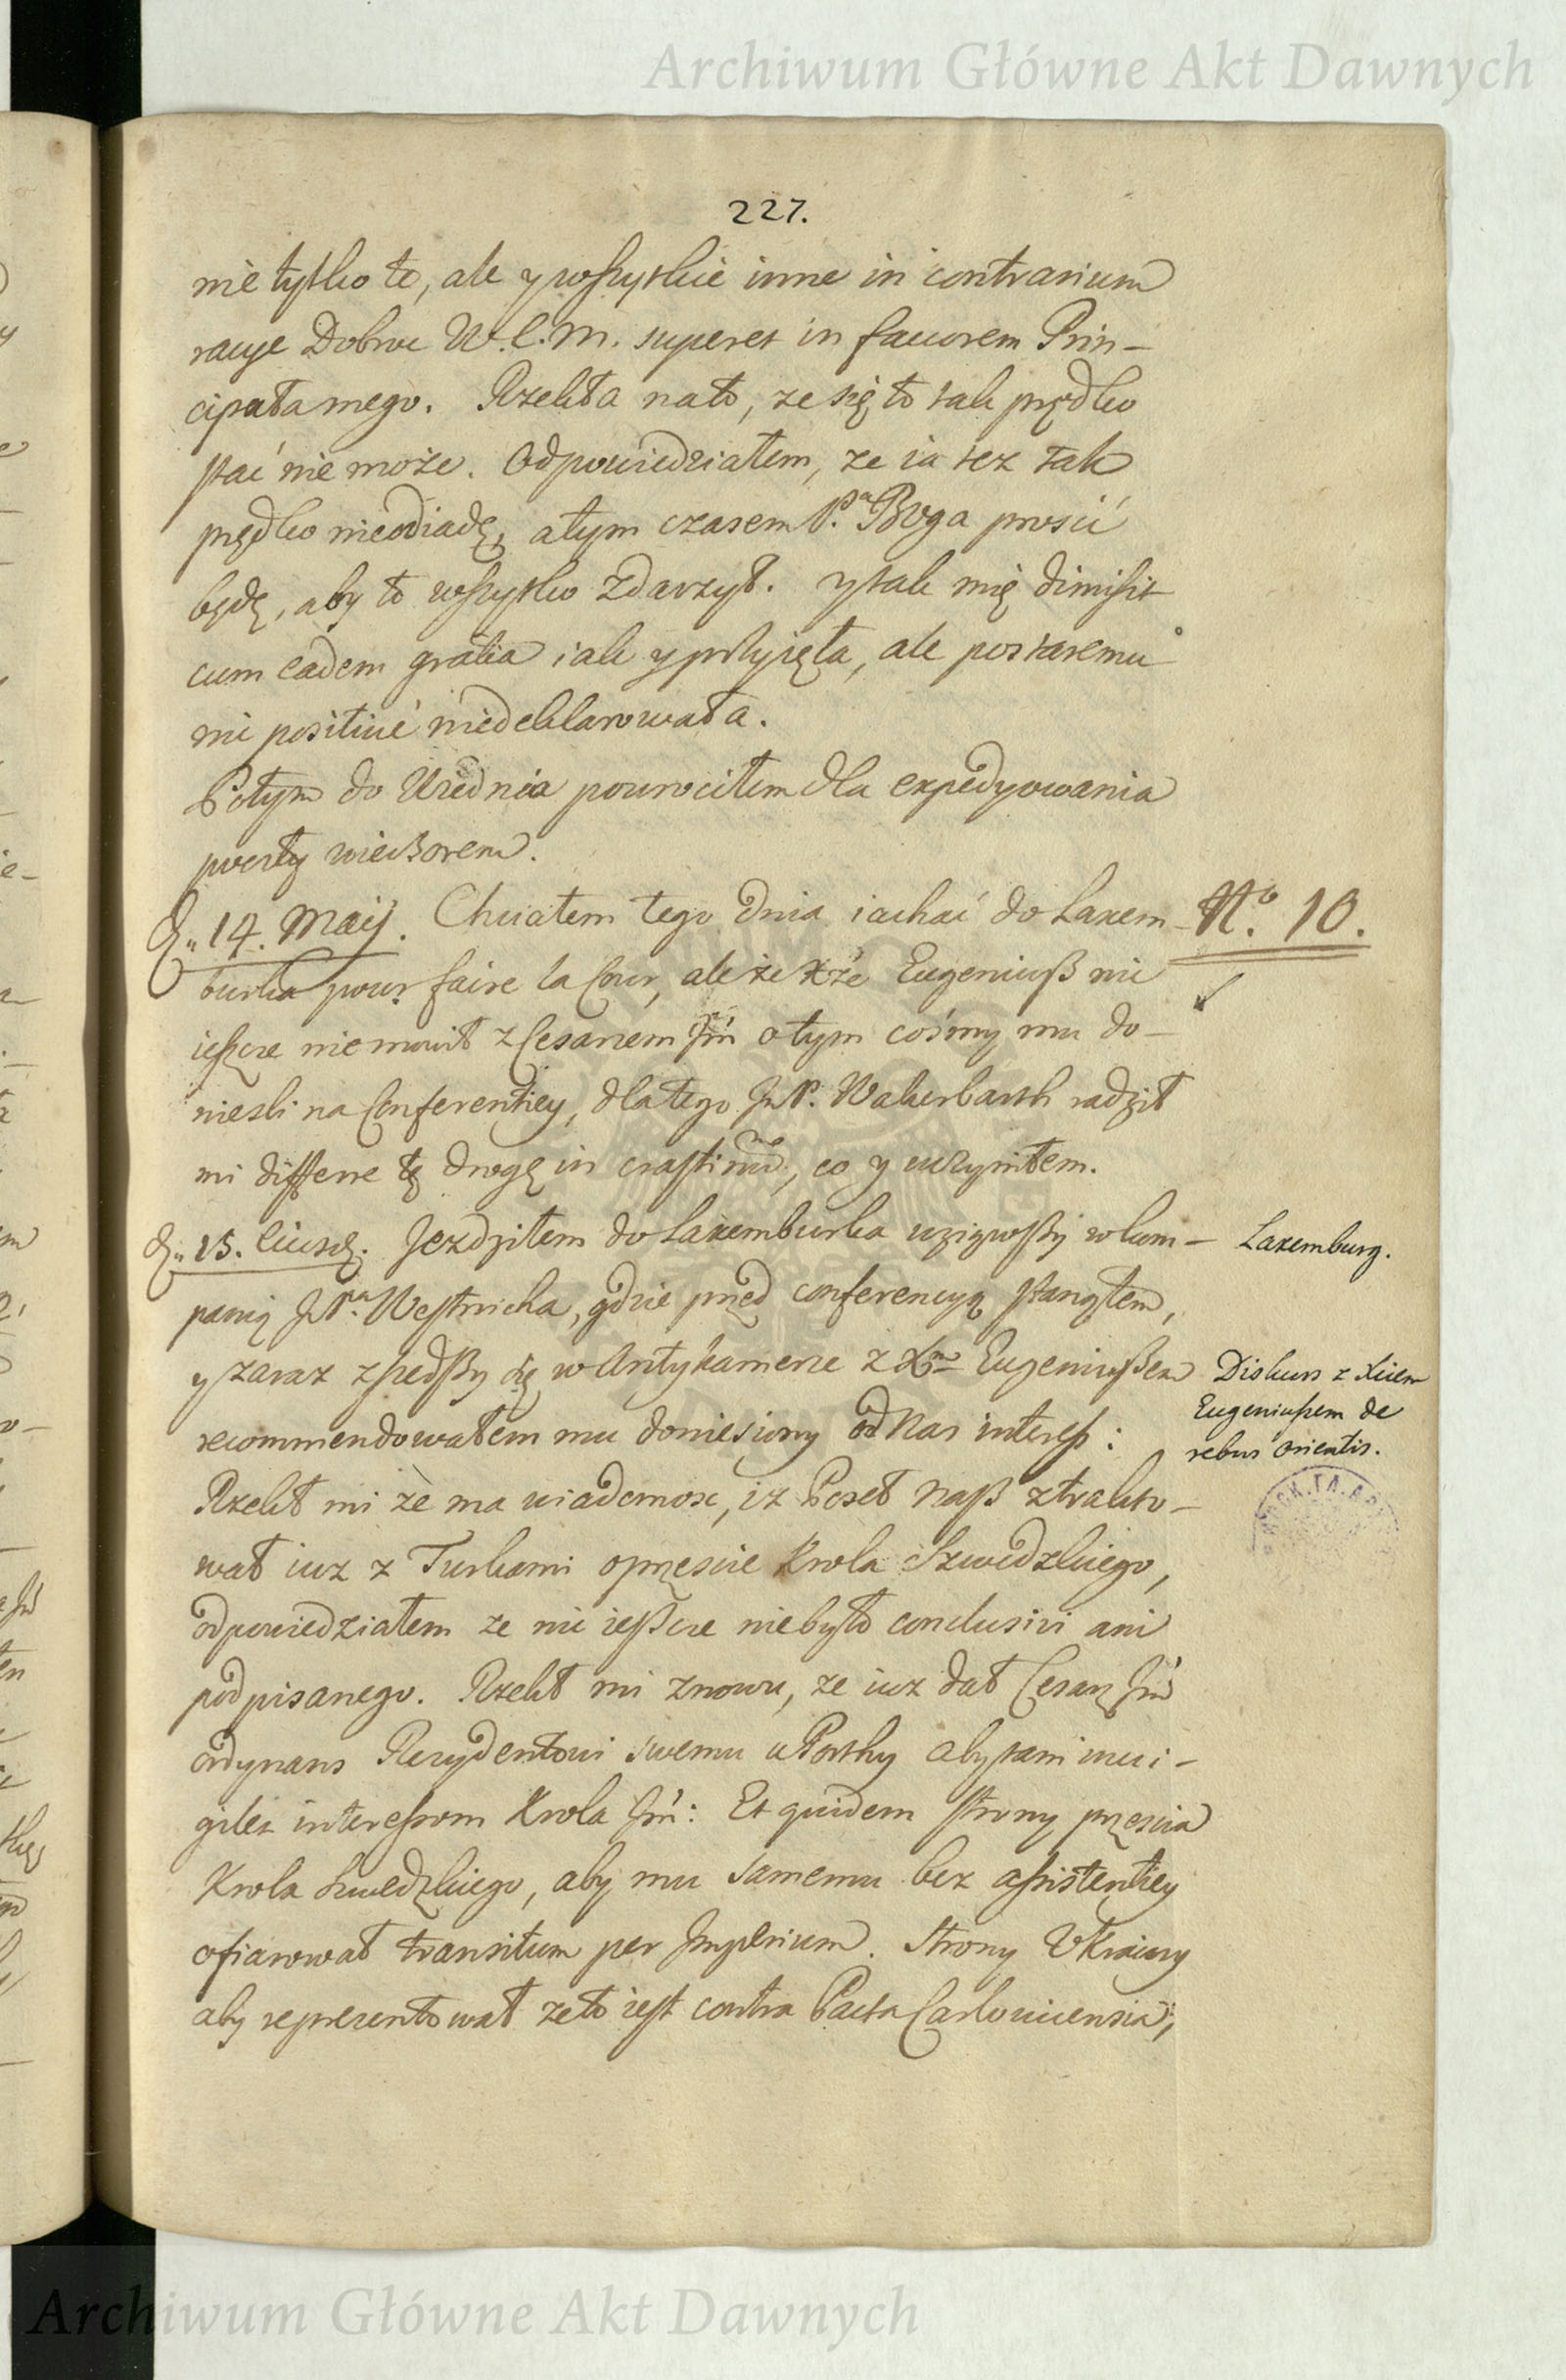 Archiwum Główne Akt Dawnych
227.
nie tylko to, ale y wszytkie inne in contrarium
racye Dobroć W.C.M. superet in favorem Prin-
cipała mego. Rzekła nato, ze się to tak prędko
stać nie może. Odpowiedziałem, ze ia tez tak
prędko nieodiadę, atym czasem P.ª Boga prosić
będę, aby to wszytko zdarzył. ytak mię dimisit
cum eadem gratia iak y przyięła, ale postaremu
mi positivè niedeklarowała.
Potym do Wiednia powrociłem dla expedyowania
poczty wieczorem.
D. 14. Maij. Chciałem tego dnia iachać do Laxem-
burka pour faire la Cour, ale że Xże Eugeniusz nic
ieszcze niemowił z Cesarzem Jm̄ otym cośmy mu do-
niesli na Conferentiey, dlatego JP. Wakerbarth radził
mi differre tę drogę in crastinū, co y uczyniłem.
D. 15. Eiusd. Jezdziłem do Laxemburka wziąwszy wkom-
panią JP.ª Westricha, gdzie przed conferencyą stanąłem,
y zaraz zszedszy się w Antykamerze z Xm Eugeniuszem
recommendowałem mu doniesiony od Nas interess:
Rzekł mi że ma wiadomosc, iz Poseł Nasz ztrakto-
wał iuz z Turkami oprzescie Krola Szwedzkiego,
odpowiedziałem ze nic ieszcze niebyło conclusivi ani
podpisanego. Rzekł mi znowu, ze iuz dał Cesarz Jm̄
ordynans Rezydentowi swemu u Porthy aby tam invi-
gilet interessom Krola Jm̄: Et quidem strony przescia
Krola Szwedzkiego, aby mu samemu bez assistentiey
ofiarował transitum per Imperium. Strony Ukrainy
aby reprezentował zeto iest contra Pacta Carlovicensia,
No. 10.
Laxemburg.
Diskurs z Xciem
Eugeniuszem de
rebus orientis.
Archiwum Główne Akt Dawnych